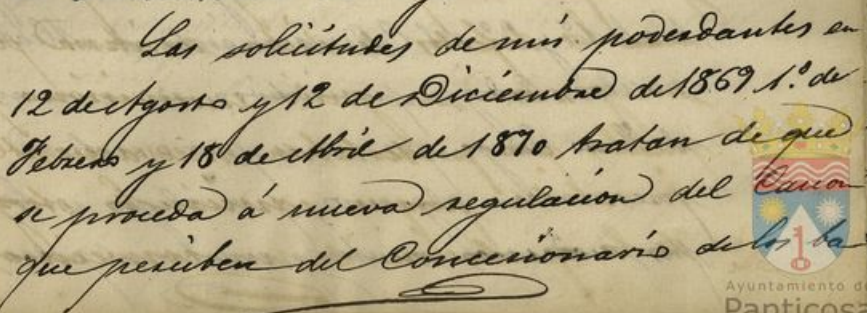 Las solicitudes de mis poderdantes en
12 de Agosto y 12 de Diciembre de 1869 1.º de
Febrero y 18 de Abril de 1870 tratan de que
se proceda á nueva regulacion del Canon
que perciben del Concesionario de los ba
Ayuntamiento de
Panticosa